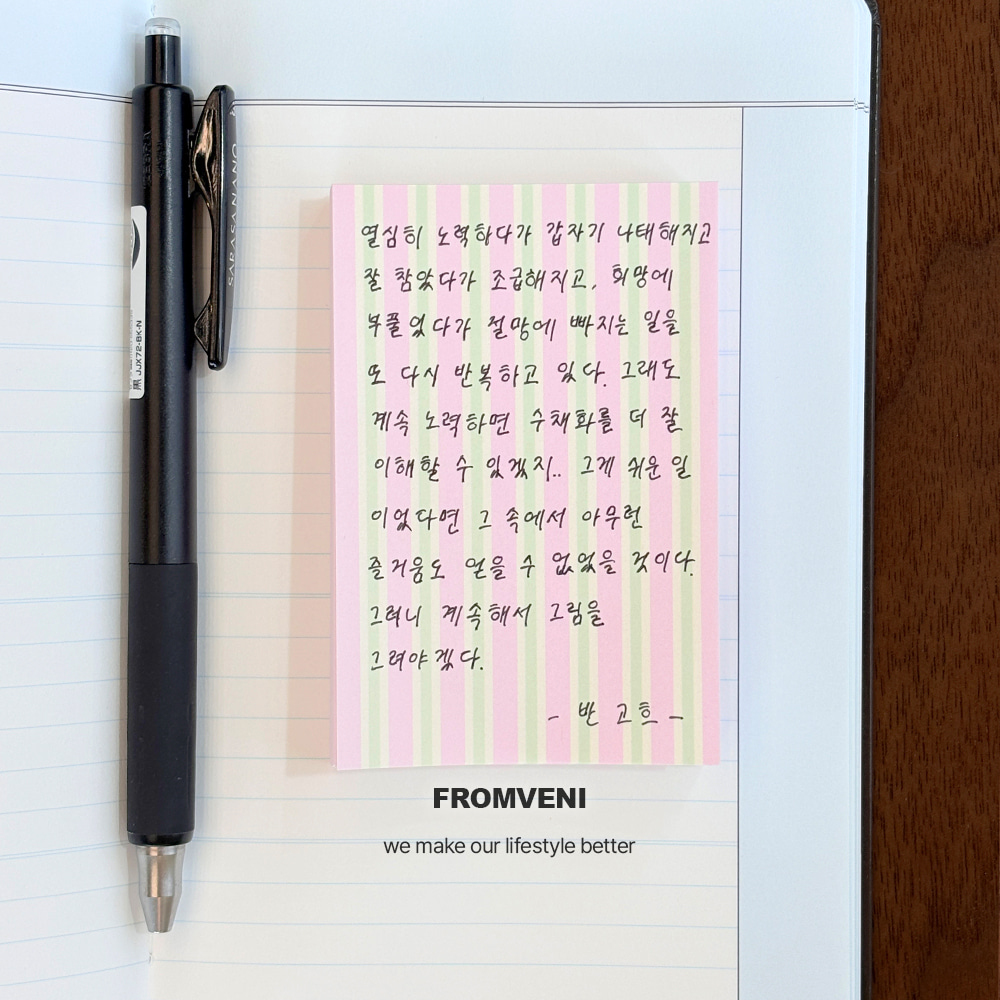 SARASA NANO
黒 JJX72-BK-N
열심히 노력하다가 갑자기 나태해지고
잘 참았다가 조급해지고, 희망에
부풀었다가 절망에 빠지는 일을
또 다시 반복하고 있다. 그래도
계속 노력하면 수채화를 더 잘
이해할 수 있겠지.. 그게 쉬운 일
이었다면 그 속에서 아무런
즐거움도 얻을 수 없었을 것이다.
그러니 계속해서 그림을
그려야겠다.
- 반 고흐 -
FROMVENI
we make our lifestyle better